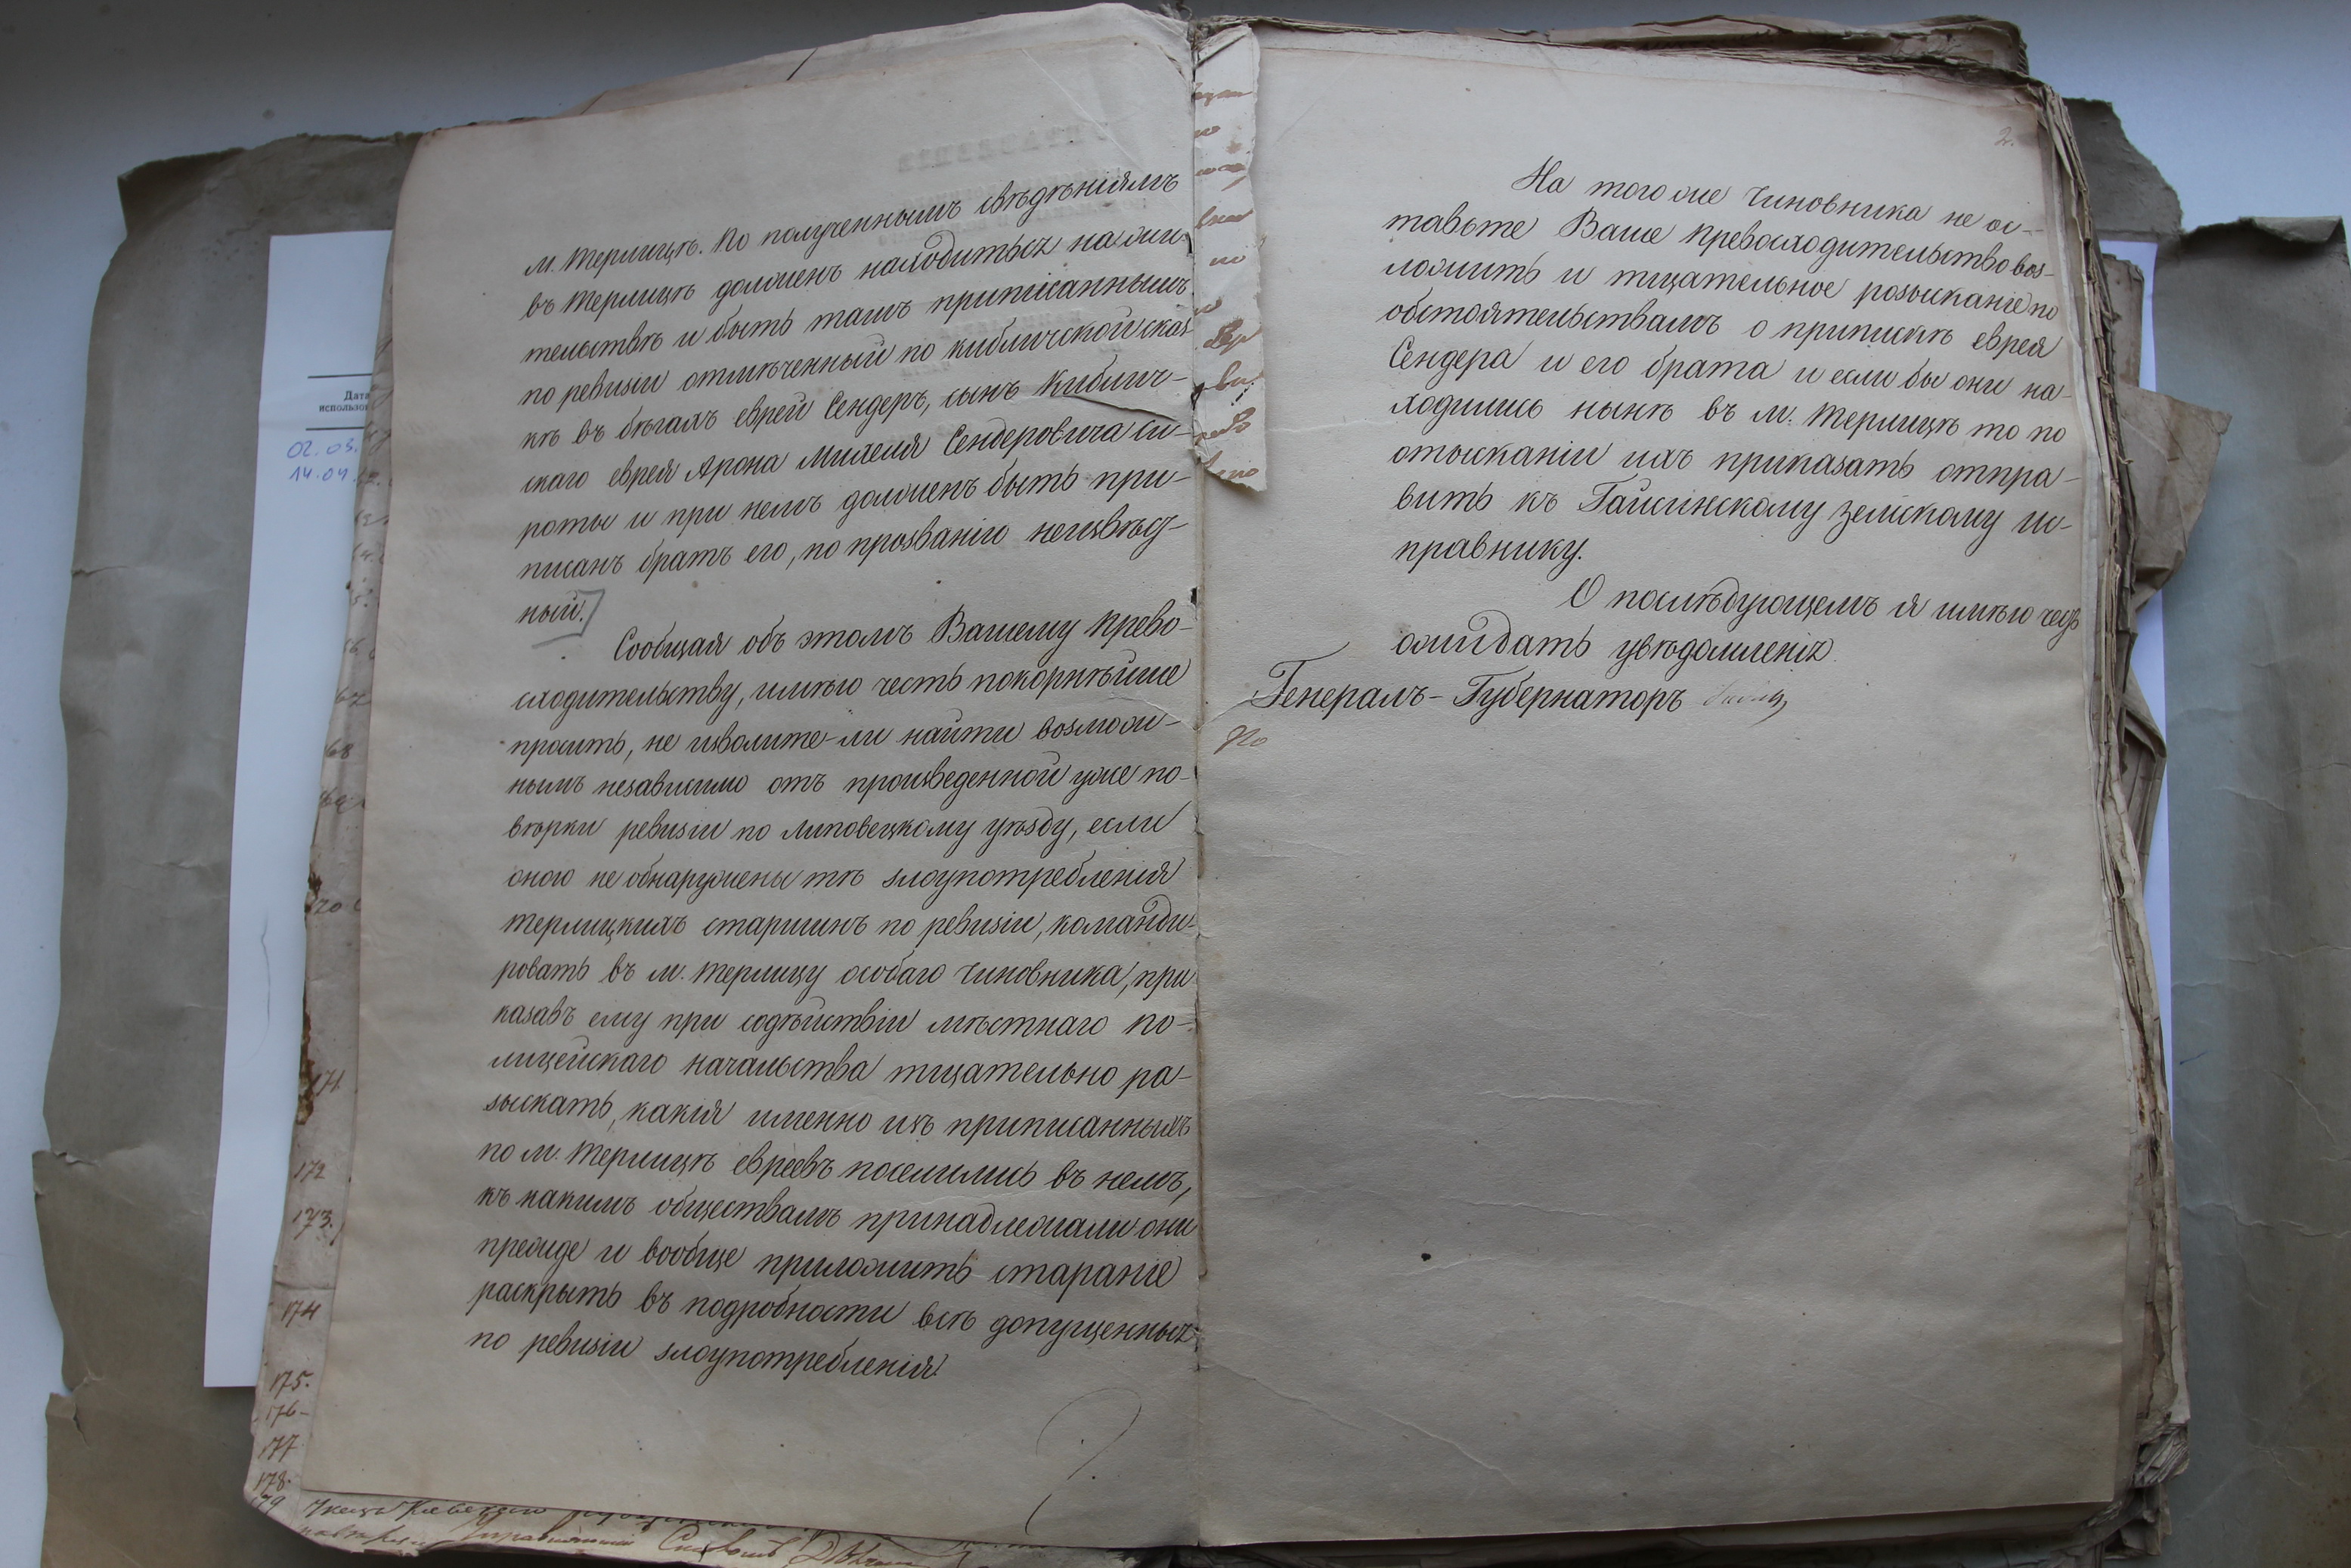 м. Терлицѣ. По полученнымъ свѣдѣніямъ
въ Терлицѣ долженъ находиться на жи-
тельствѣ и быть тамъ приписаннымъ
по ревизіи отмѣченный по кибличской сказ-
кѣ въ бѣгахъ еврей Сендеръ, сынъ Киблич-
скаго еврея Арона Михеля Сендеровича Си-
роты и при немъ долженъ быть при-
писанъ братъ его, по прозванію неизвѣст-
ный.
Сообщая объ этомъ Вашему Прево-
сходительству, имѣю честь покорнѣйше
просить, не изволите-ли найти возмож-
нымъ независимо отъ произведенной уже по-
вѣрки ревизіи по Липовецкому уѣзду, если
оною не обнаружены тѣ злоупотребленія
терлицкихъ старшинъ по ревизіи, команди-
ровать въ м. Терлицу особаго чиновника, при
казавъ ему при содѣйствіи мѣстнаго по-
лицейскаго начальства тщательно ра-
зыскать, какія именно изъ приписанныхъ
по м. Терлицѣ евреевъ поселились въ немъ,
къ какимъ обществамъ принадлежали они
прежде и вообще приложить стараніе
раскрыть въ подробности всѣ допущенныя
по ревизіи злоупотребленія.
2.
На того же чиновника не ос-
тавьте Ваше Превосходительство воз-
ложить и тщательное розысканіе по
обстоятельствамъ о припискѣ еврея
Сендера и его брата и если бы они на-
ходились нынѣ въ м. Терлицѣ то по
отысканіи ихъ приказать отпра-
вить къ Гайсинскому земскому ис-
правнику.
О послѣдующемъ я имѣю честь
ожидать увѣдомленія.
Генералъ-Губернаторъ
Дата
02.03.
14.04.
68
171
172
173.
174
175.
176-
177
178.
179